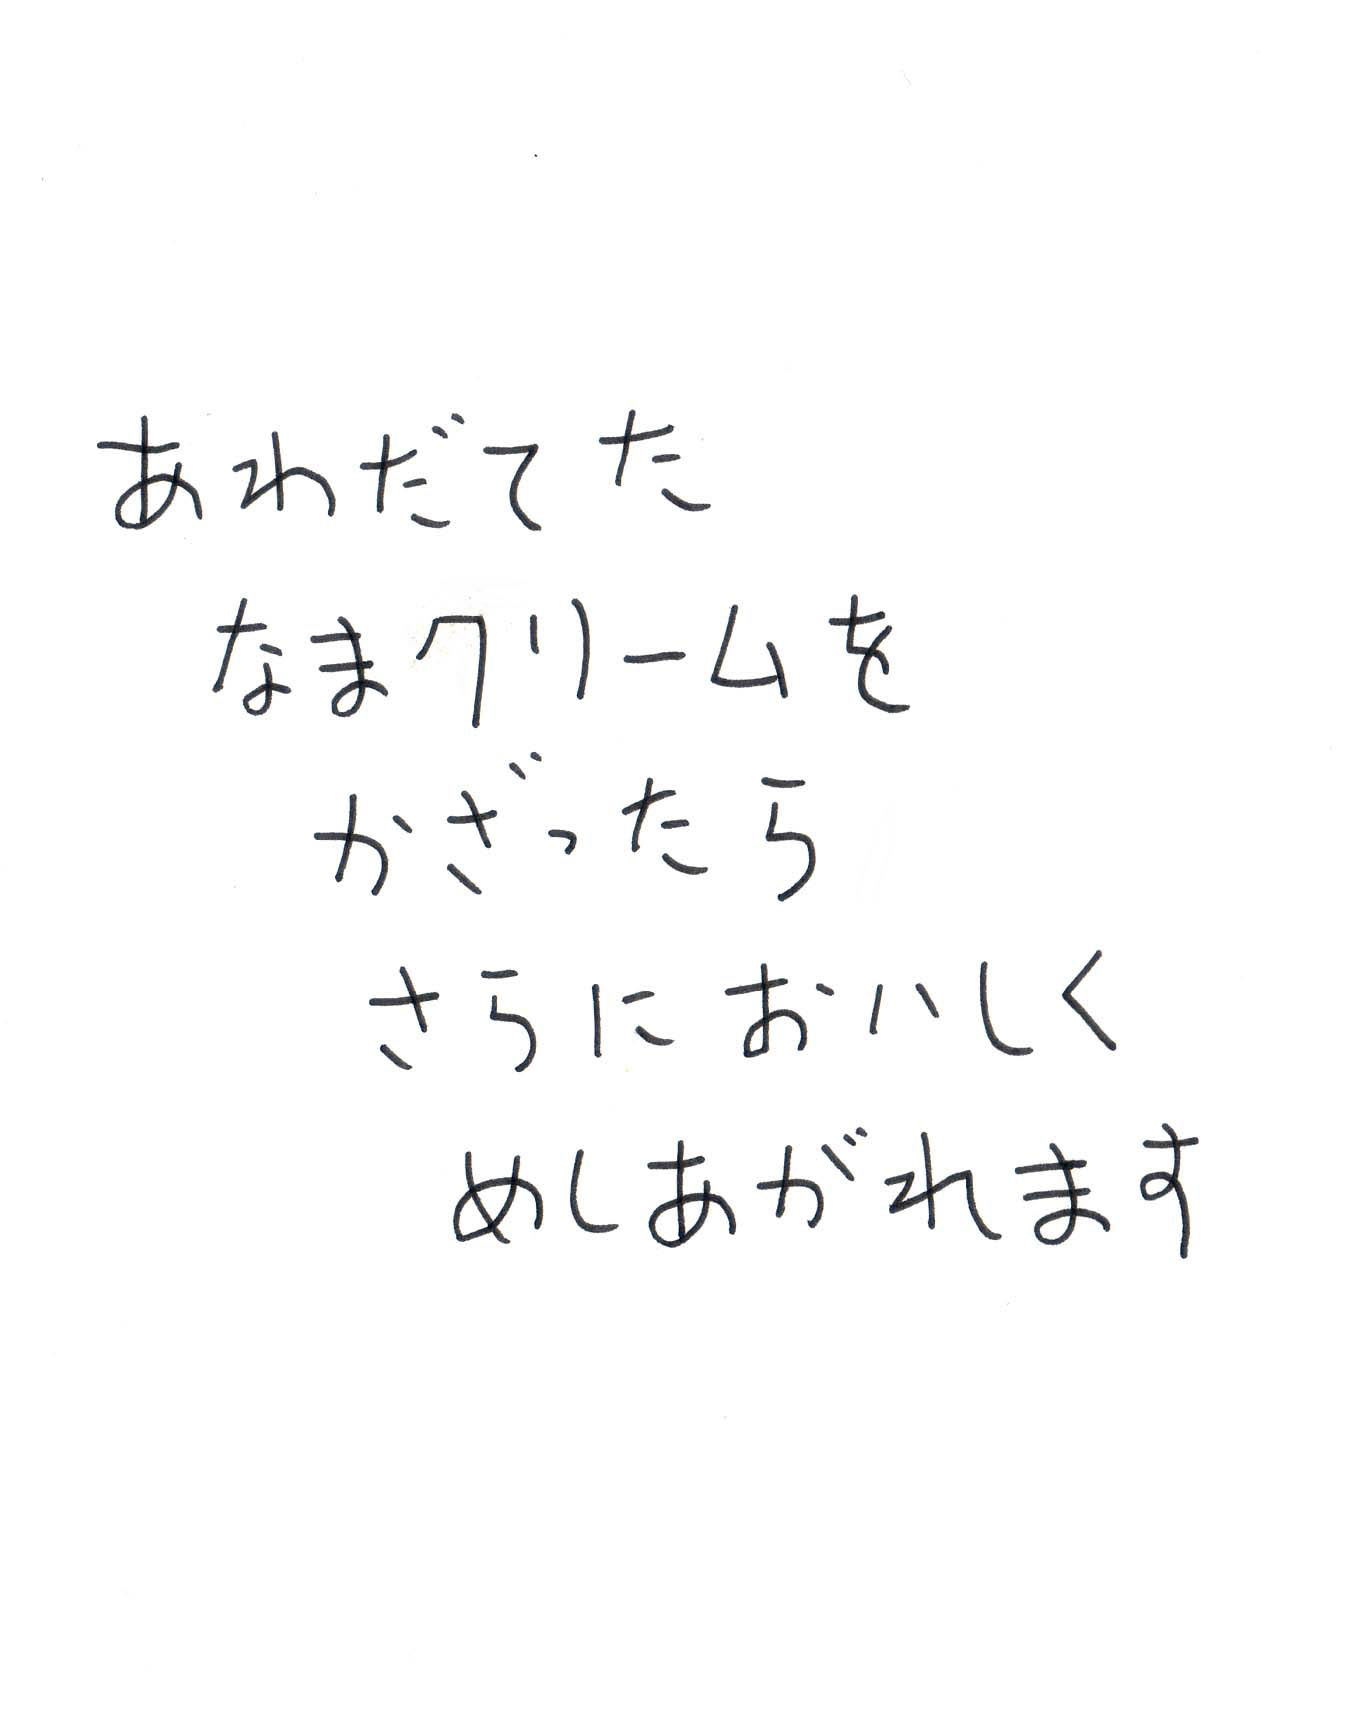 あわだてた
なまクリームを
かざったら
さらにおいしく
めしあがれます